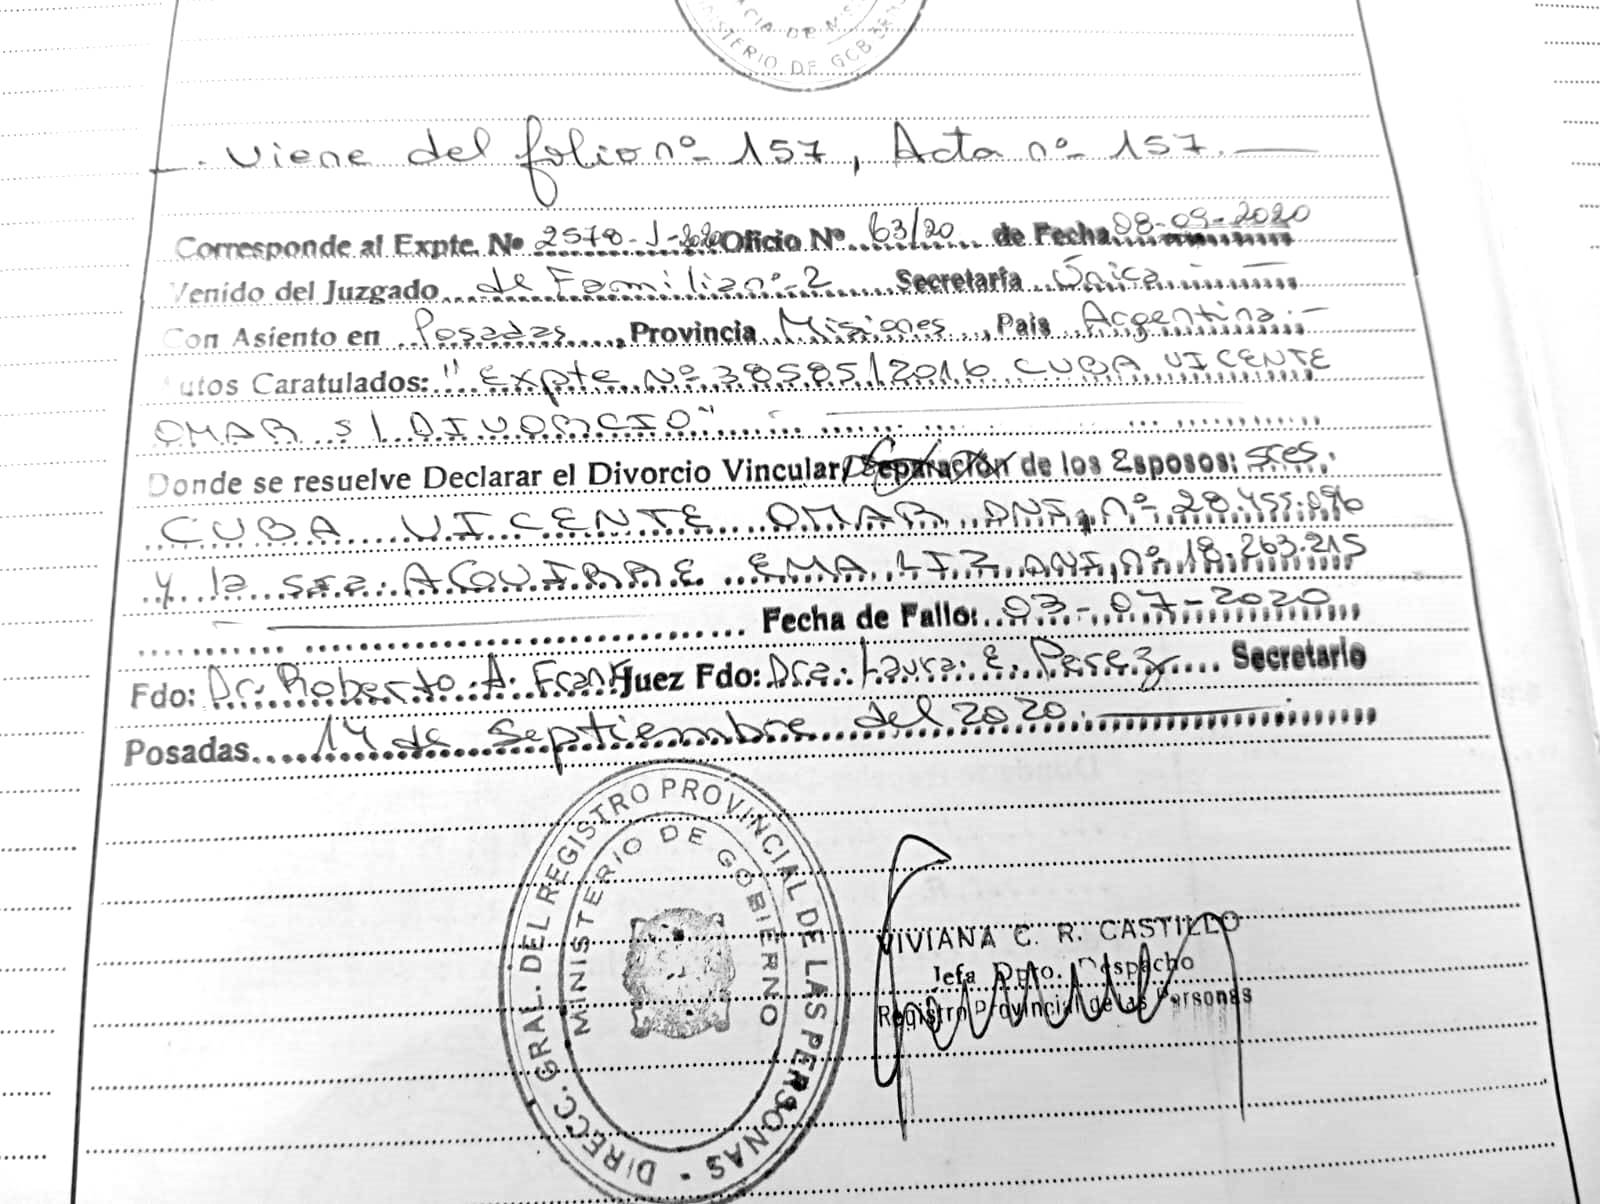 MINISTERIO DE GOB
Viene del folio nº 157, Acta nº 157.
Corresponde al Expte. Nº 2578-J-2020 Oficio Nº 63/20 de Fecha 08-09-2020
Venido del Juzgado de Familia nº 2 Secretaría Única
Con Asiento en Posadas, Provincia Misiones, País Argentina.
Autos Caratulados: "Expte Nº 38585/2016 CUBA VICENTE
OMAR S/ DIVORCIO"
Donde se resuelve Declarar el Divorcio Vincular/Separación de los Esposos: sres.
CUBA VICENTE OMAR DNI, nº 28.455.096
y la sra. AGUIRRE EMA LIZ DNI, nº 18.263.215
Fecha de Fallo: 03-07-2020
Fdo: Dr. Roberto A. Frank Juez Fdo: Dra. Laura E. Perez Secretario
Posadas 14 de Septiembre del 2020.
DIRECC. GRAL. DEL REGISTRO PROVINCIAL DE LAS PERSONAS
MINISTERIO DE GOBIERNO
VIVIANA C. R. CASTILLO
Jefa Dpto. Despacho
Registro Provincial de las Personas